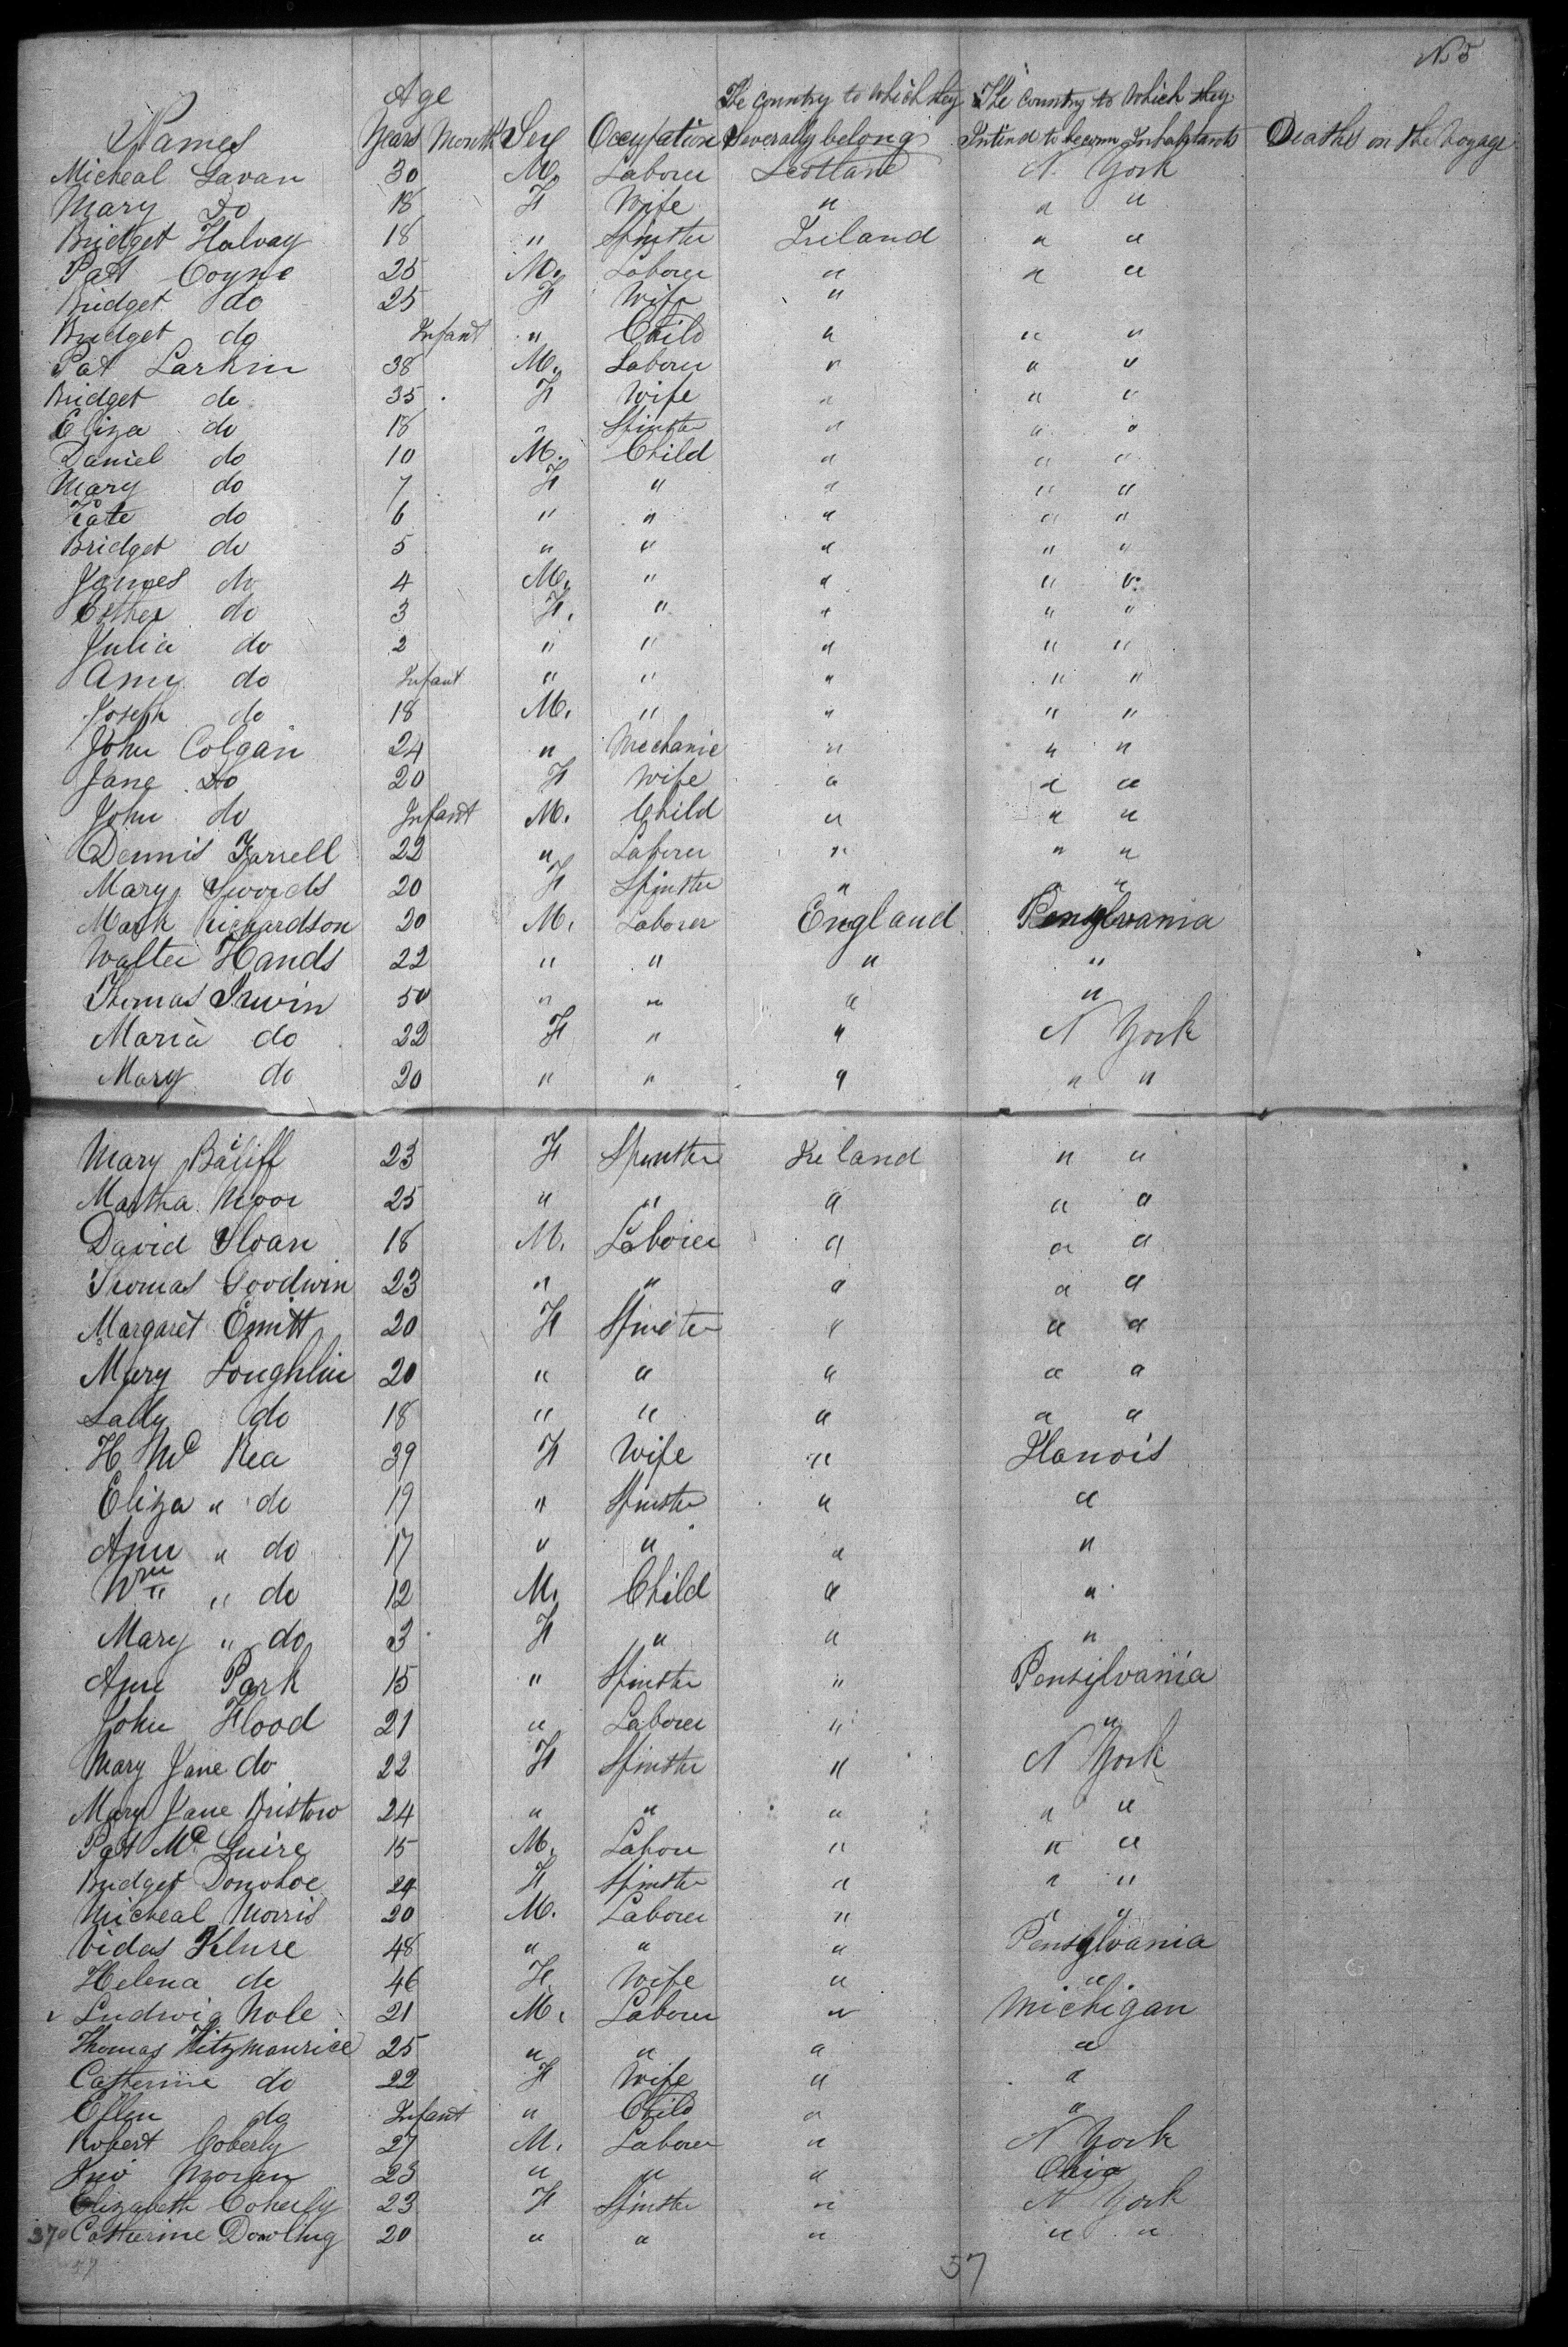 No 5
Age The country to which they The country to which they
Names Years Month Sex Occupation Severally belong Intend to becom Inhabitants Deaths on the Voyage
Micheal Gavan 30 M. Laborer Scotland N. York
Mary Do 18 F Wife " " "
Bridget Halvay 18 " Spinster Ireland " "
Pat Coyne 25 M. Laborer " " "
Bridget do 25 F Wife "
Bridget do Infant " Child " " "
Pat Larkin 38 M. Laborer " " "
Bridget do 35 F Wife " " "
Eliza do 18 " Spinster " " "
Daniel do 10 M. Child " " "
Mary do 7 F " " " "
Kate do 6 " " " " "
Bridget do 5 " " " " "
James do 4 M. " " " "
Esther do 3 F. " " " "
Julia do 2 " " " " "
Ann do Infant " " " " "
Joseph do 18 M. " " " "
John Colgan 24 " Mechanic " " "
Jane Do 20 F Wife " " "
John do Infant M. Child " " "
Dennis Farrell 22 " Laborer " " "
Mary Swords 20 F Spinster " " "
Mark Richardson 20 M. Laborer England Pensylvania
Walter Hands 22 " " " "
Thomas Irwin 50 " " " "
Maria do 22 F " " N York
Mary do 20 " " " " "
Mary Bailiff 23 F Spinster Ireland " "
Martha Moor 25 " " " " "
David Sloan 18 M. Laborer " " "
Thomas Goodwin 23 " " " " "
Margaret Emitt 20 F Spinster " " "
Mary Loughlin 20 " " " " "
Sally do 18 " " " " "
H Mc Rea 39 F Wife " Ilanois
Eliza " do 19 " Spinster " "
Ann " do 17 " " " "
Wm " " do 12 M. Child " "
Mary " do 3 F " " "
Ann Park 15 " Spinster " Pensylvania
John Flood 21 " Laborer " "
Mary Jane do 22 F Spinster " N York
Mary Jane Bristow 24 " " " " "
Pat Mc Guire 15 M. Labour " " "
Bridget Donohoe 24 F Spinster " " "
Micheal Morris 20 M. Laborer " " "
Vidas Klure 48 " " " Pensylvania
Helena do 46 F. Wife " "
Ludwig Nole 21 M. Laborer " Michigan
Thomas Fitzmaurice 25 " " " "
Catherine do 22 F Wife " "
Ellen do Infant " Child " "
Robert Coberly 27 M. Laborer " N York
Jno Moran 23 " " " Ohio
Elizabeth Coherly 23 F Spinster " N York
370 Catherine Dowling 20 " " " " "
57 57